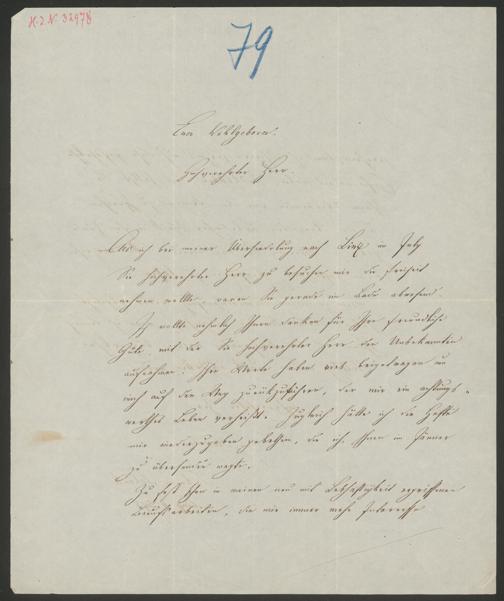 H.I.N. 32978
79
Euer Wohlgeboren!
Hochverehrter Herr.
Als ich bei meiner Übersiedlung nach Linz im July
Sie hochverehrter Herr zu besuchen mir die Freiheit
nehmen wollte, waren Sie gerade im Bade abwesend.
Ich wollte nehmlich Ihnen danken für Ihre freundliche
Güte mit der Sie hochverehrter Herr die Unbekannte
aufnahmen. Ihre Werke haben viel beigetragen
mich auf den Weg zurückzuführen, der mir ein achtungs-
werthes Leben verheißt. Zugleich hätte ich die Hefte
mir wiederzugeben gebethen, die ich Ihnen im Jänner
zu übersenden wagte.
Zu fest in meinen neu mit Lebhaftigkeit ergriffenen
Berufsarbeiten, die mir immer mehr Interesse